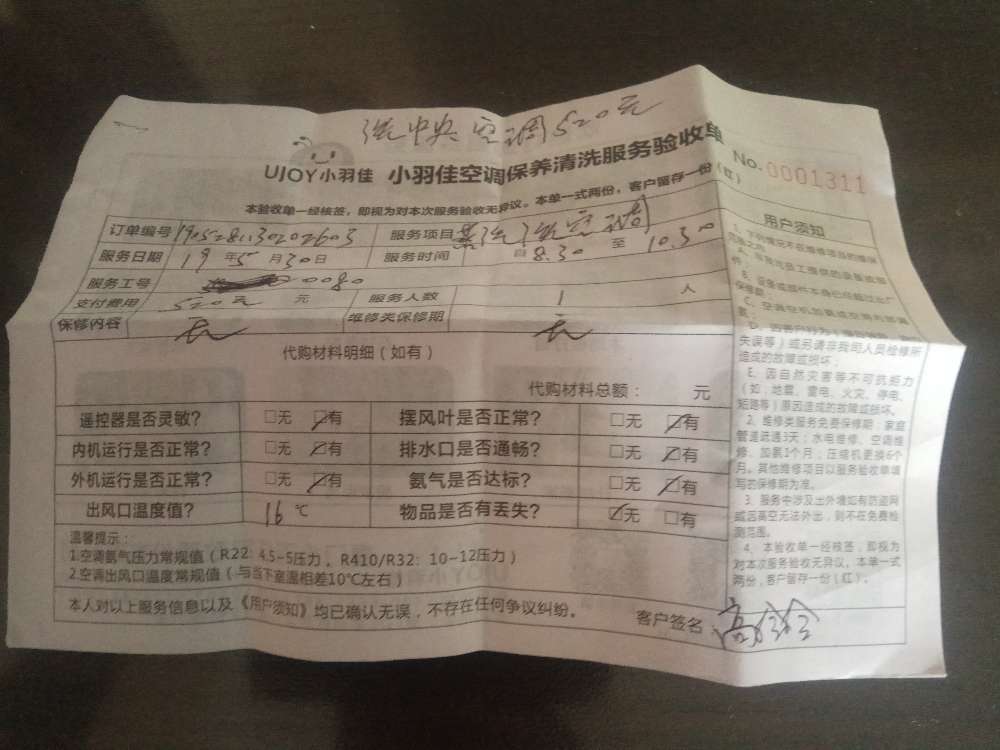 洗中央空调520元
UJOY小羽佳 小羽佳空调保养清洗服务验收单
No.0001311
本验收单一经核签，即视为对本次服务验收无异议。本单一式两份，客户留存一份（红）
订单编号 服务项目 洗空调
服务日期 19年5月30日 服务时间 自8.30至10.30
服务工号 0080
支付费用 520元 元 服务人数 1 人
保修内容 无 维修类保修期 无
代购材料明细（如有）
代购材料总额： 元
遥控器是否灵敏？ □无 ☑有 摆风叶是否正常？ □无 ☑有
内机运行是否正常？ □无 ☑有 排水口是否通畅？ □无 ☑有
外机运行是否正常？ □无 ☑有 氨气是否达标？ □无 ☑有
出风口温度值？ 16 ℃ 物品是否有丢失？ ☑无 □有
温馨提示：
1.空调氨气压力常规值（R22：4.5~5压力，R410/R32：10~12压力）
2.空调出风口温度常规值（与当下室温相差10℃左右）
本人对以上服务信息以及《用户须知》均已确认无误，不存在任何争议纠纷。
客户签名：
用户须知
1、下列情况不在维修项目的保
修范围之内
失误等）或另请非我司人员检修所
造成的故障或损坏
E、因自然灾害等不可抗拒力
（如：地震、雷电、火灾、停电、
短路等）原因造成的故障或损坏。
2、维修类服务免费保修期：家庭
管道疏通3天；水电维修、空调维
修、加氨1个月；压缩机更换6个
月。其他维修项目以服务验收单填
写的保修期为准。
3、服务中涉及出外墙如有防盗网
或因高空无法外出，则不在免费检
测范围。
4、本验收单一经核签，即视为
对本次服务验收无异议。本单一式
两份，客户留存一份（红）。